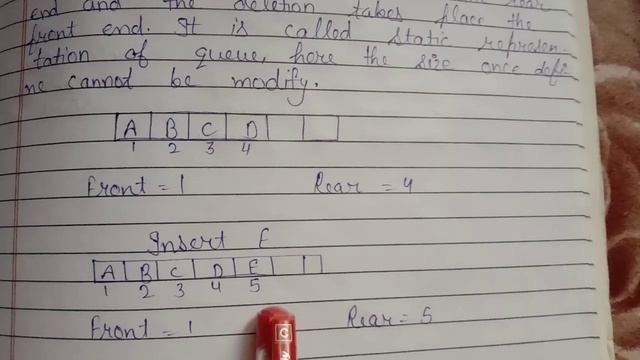 end and the deletion takes place the
front end. It is called static represen-
tation of queue, here the size once defi
ne cannot be modify.
A B C D
1 2 3 4
Front = 1 Rear = 4
Insert E
A B C D E
1 2 3 4 5
Front = 1 Rear = 5